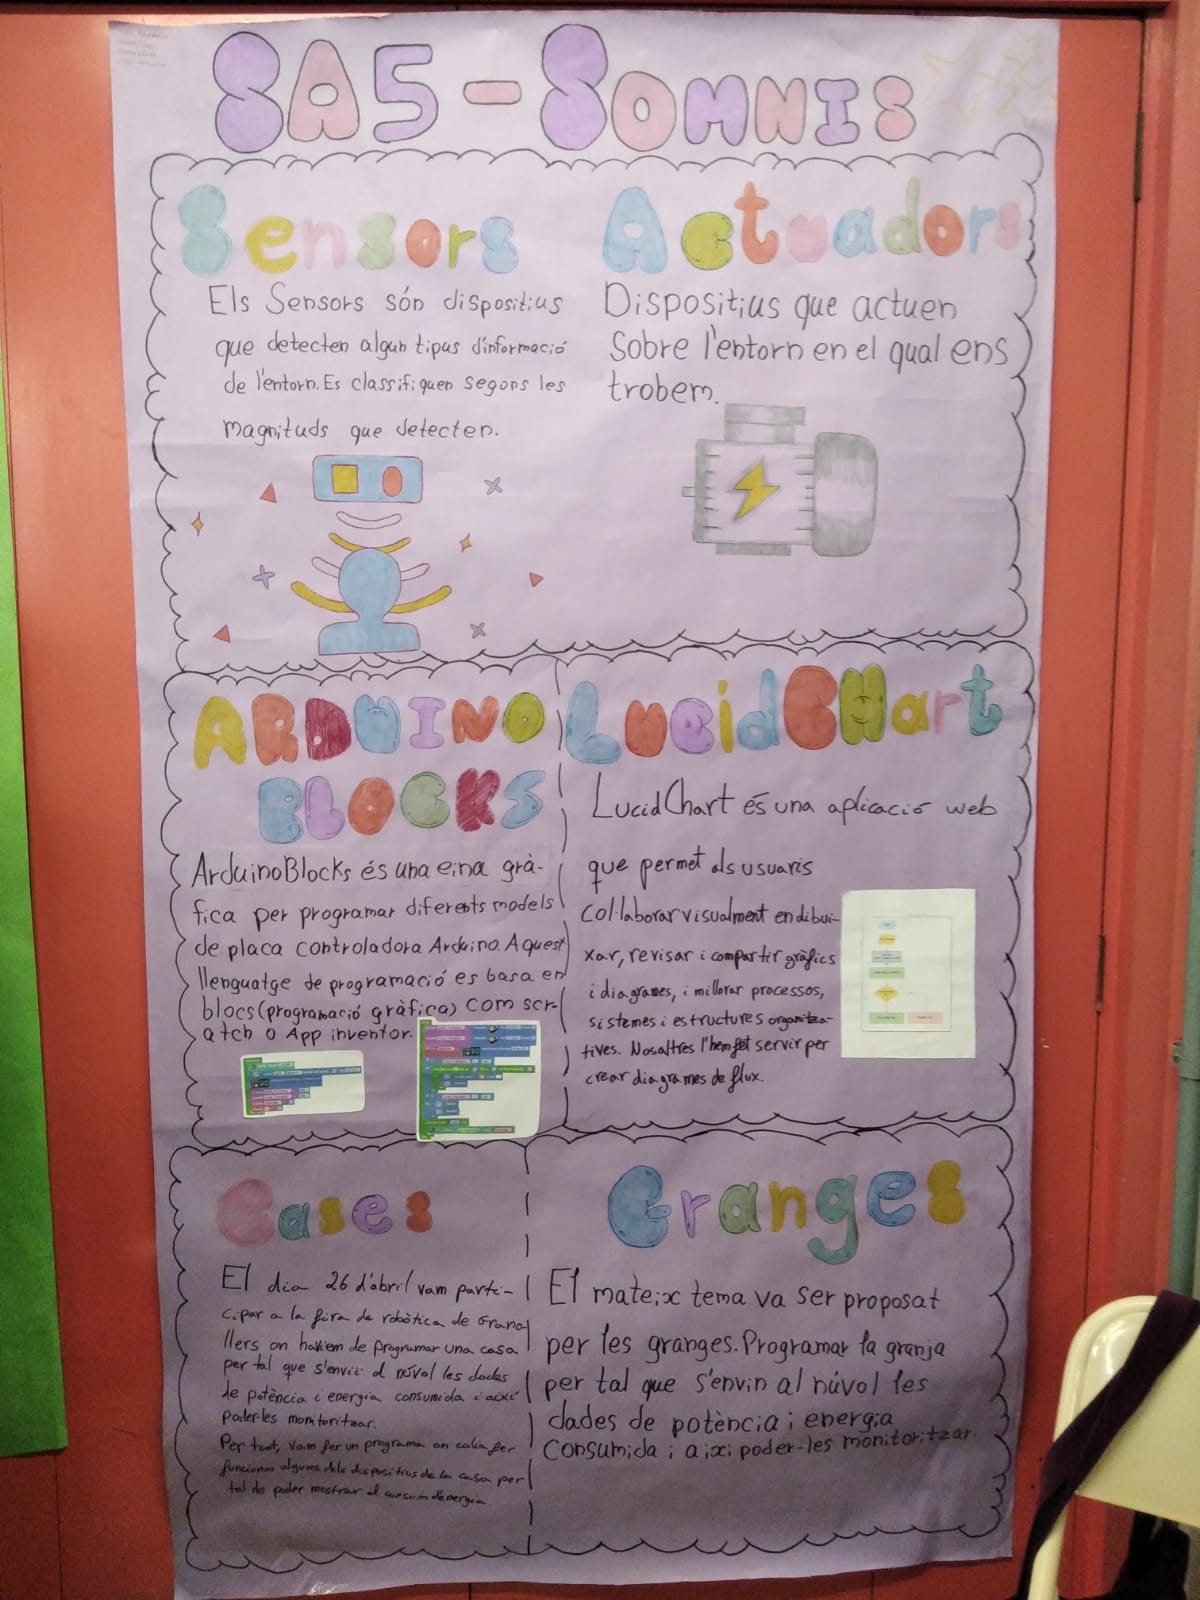 SA5 - SOMNIS
Sensors
Els Sensors són dispositius
que detecten algun tipus d'informació
de l'entorn. Es classifiquen segons les
magnituds que detecten.
Actuadors
Dispositius que actuen
sobre l'entorn en el qual ens
trobem.
ARDUINO
BLOCKS
ArduinoBlocks és una eina grà-
fica per programar diferents models
de placa controladora Arduino. Aquest
llenguatge de programació es basa en
blocs (programació gràfica) com scr-
atch o App inventor.
LucidCHart
LucidChart és una aplicació web
que permet als usuaris
col·laborar visualment en dibui-
xar, revisar i compartir gràfics
i diagrames, i millorar processos,
sistemes i estructures organitza-
tives. Nosaltres l'hem fet servir per
crear diagrames de flux.
Cases
El dia 26 d'abril vam parti-
cipar a la fira de robòtica de Grano
llers on haviem de programar una casa
per tal que s'envii al núvol les dades
de potència i energia consumida i així
poder-les monitoritzar.
Per tant, vam fer un programa on calia fer
funcionar alguns dels dispositius de la casa per
tal de poder mostrar el consum d'energia.
Granges
El mateix tema va ser proposat
per les granges. Programar la granja
per tal que s'envin al núvol les
dades de potència i energia
consumida i aixi poder-les monitoritzar.